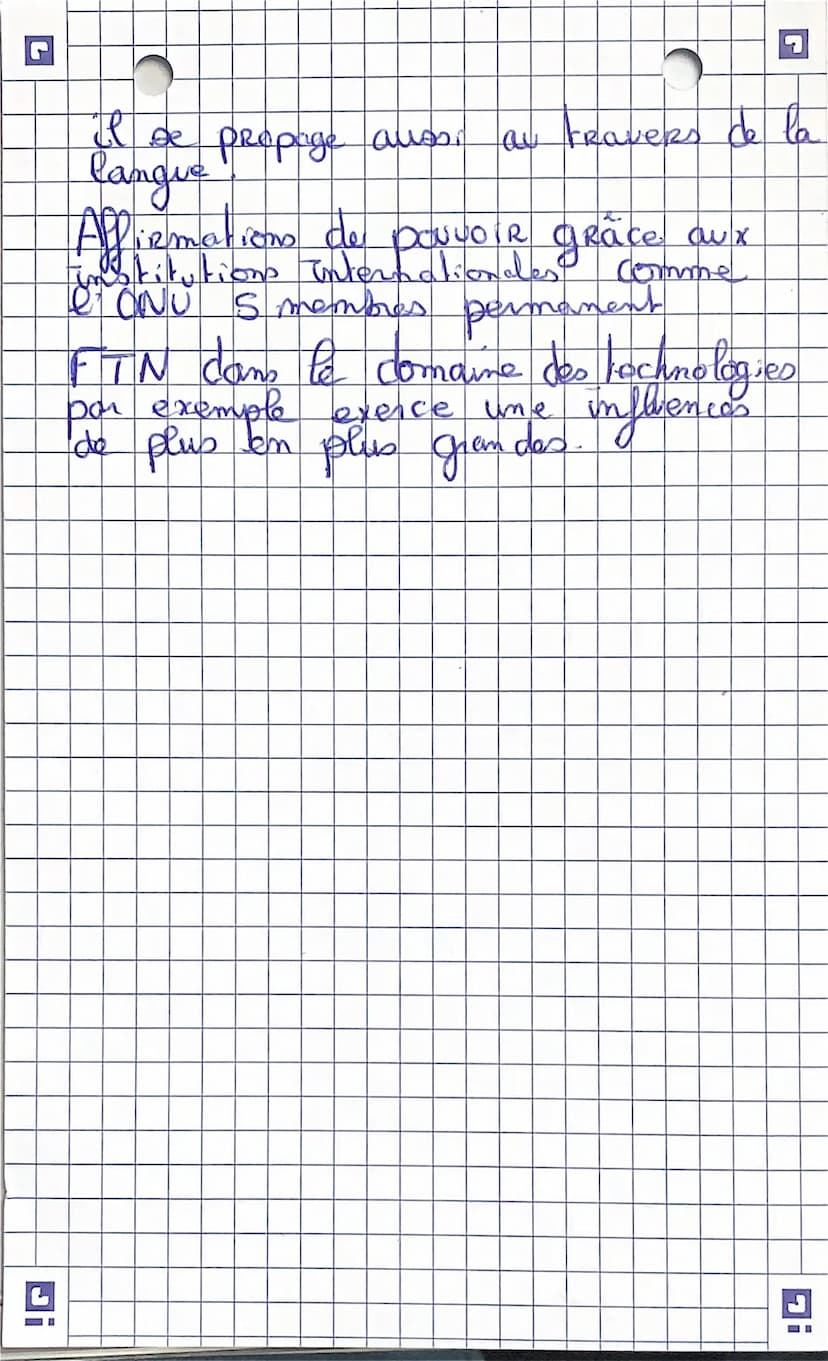 il se propage aussi au travers de la
langue.
Affirmations de pouvoir grâce aux
institutions internationales comme
l'ONU 5 membres permanent
FTN dans le domaine des technologies
par exemple exerce une influences
de plus en plus grandes.